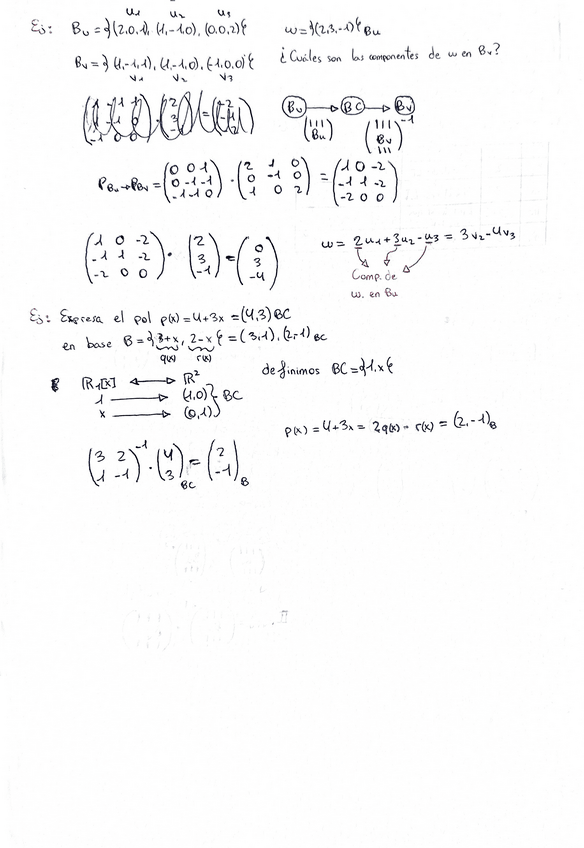 u1 u2 u3
Ej: Bu = {(2,0,1), (1,-1,0), (0,0,2)} w = {(2,3,-1)}Bu
Bv = {(1,-1,1), (1,-1,0), (-1,0,0)} ¿Cuáles son las componentes de w en Bv?
v1 v2 v3
Bu → BC → Bv
(||| Bu) (||| Bv |||)^-1
PBu→PBv = (0 0 1; 0 -1 -1; -1 -1 0) · (2 1 0; 0 -1 0; 1 0 2) = (1 0 -2; -1 1 -2; -2 0 0)
(1 0 -2; -1 1 -2; -2 0 0) · (2; 3; -1) = (0; 3; -4) w = 2u1 + 3u2 - u3 = 3v2 - 4v3
Comp. de
w. en Bu
Ej: Expresa el pol p(x) = 4+3x = (4,3)BC
en base B = {3+x, 2-x} = (3,1), (2,-1)BC
q(x) r(x) definimos BC = {1,x}
R1[x] ↔ R^2
1 → (1,0) } BC
x → (0,1)
p(x) = 4+3x = 2q(x) - r(x) = (2,-1)B
(3 2; 1 -1)^-1 · (4; 3)BC = (2; -1)B